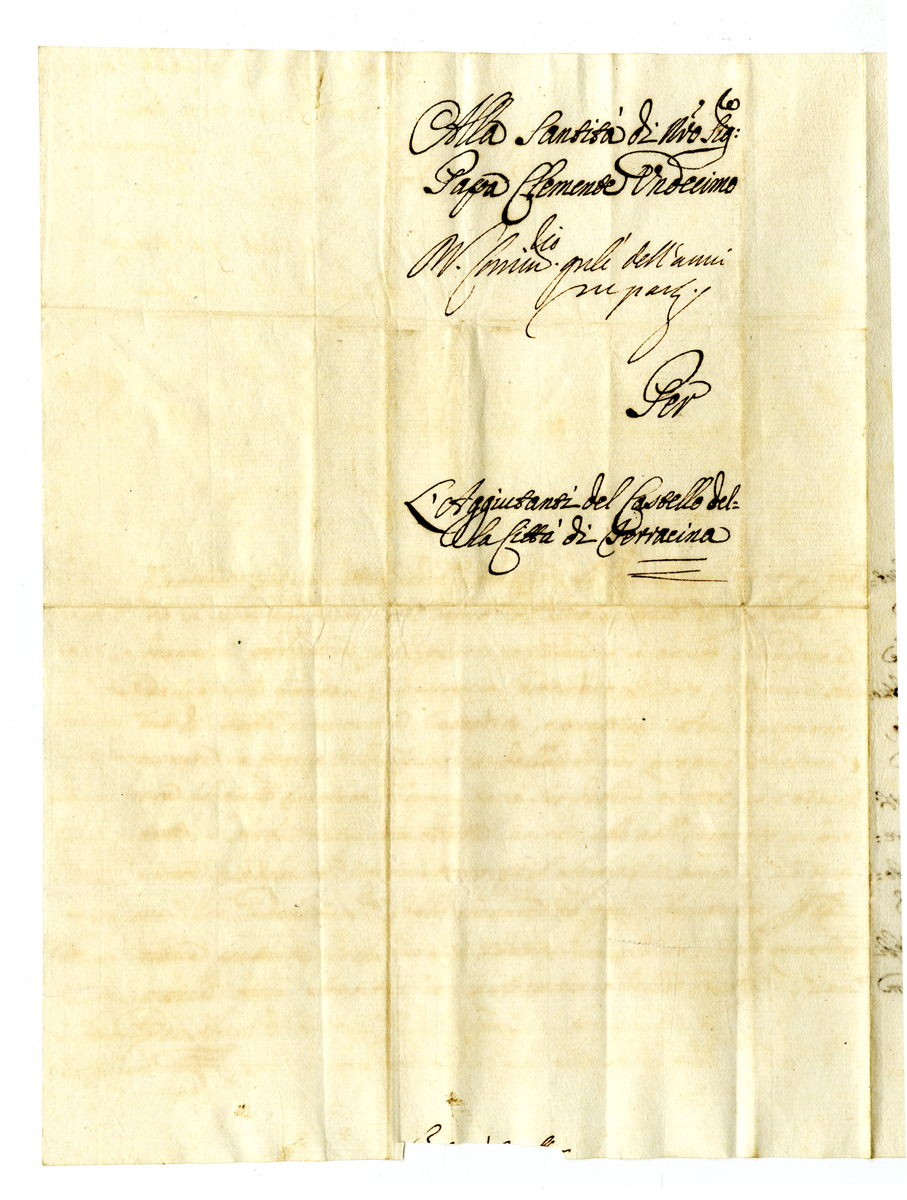 Alla Santità di Nrō Sigre
Papa Clemente Undecimo
M. Comm.rio gnlē dell'armi
ne parli
Per
L'Aggiutanti del Castello del=
la Città di Terracina